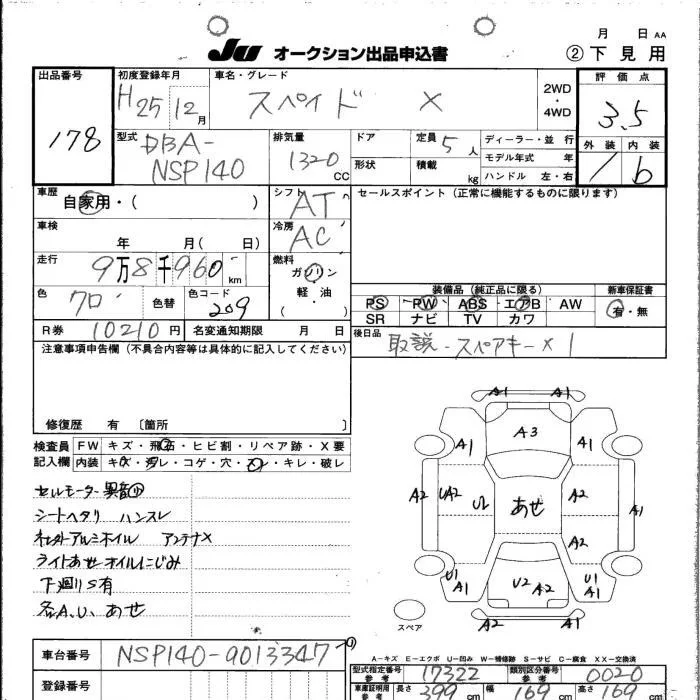 月 日 AA
JU オークション出品申込書 ②下見用
出品番号 初度登録年月 車名・グレード 2WD・4WD 評価点
178 H25 12月 スペイド X 3.5
型式 DBA-NSP140 排気量 1320CC ドア 形状 定員 5人 積載 kg ディーラー・並行 モデル年式 年 ハンドル 左・右 外装 内装 b
車歴 自家用・( ) シフト AT セールスポイント(正常に機能するものに限ります)
車検 年 月( 日) 冷房 AC
走行 9万8千960km 燃料 ガソリン 軽・油 ( )
装備品(純正品に限る) 新車保証書
色 クロ 色替 色コード 209 PS PW ABS エアB AW 有・無
SR ナビ TV カワ
R券 10210円 名変通知期限 月 日 後日品 取説-スペアキーX1
注意事項申告欄(不具合内容等は具体的に記入してください)
修復歴 有 〔箇所 〕
検査員記入欄 FW キズ・飛石・ヒビ割・リペア跡・X要
内装 キズ・汚レ・コゲ・穴・スレ・キレ・破レ
セルモーター異音
シートヘタリ ハンスレ
アルミホイル アンテナX
ライトあせオイルにじみ
下廻りS有
各A.U. あせ
A1 A1
A1 A3 A1
A2 UA2 U あせ A2 A1
A2
U1 A1 U2 A2 U1 A1
スペア A2 A1
A-キズ E-エクボ U-凹み W-補修跡 S-サビ C-腐食 XX-交換済
車台番号 NSP140-9013347 型式指定番号 参考 17322 類別区分番号 参考 0020
登録番号 車庫証明用 参考 長さ 399cm 幅 169cm 高さ 169cm